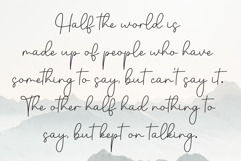 Half the world is
made up of people who have
something to say, but can't say it.
The other half had nothing to
say, but kept on talking.